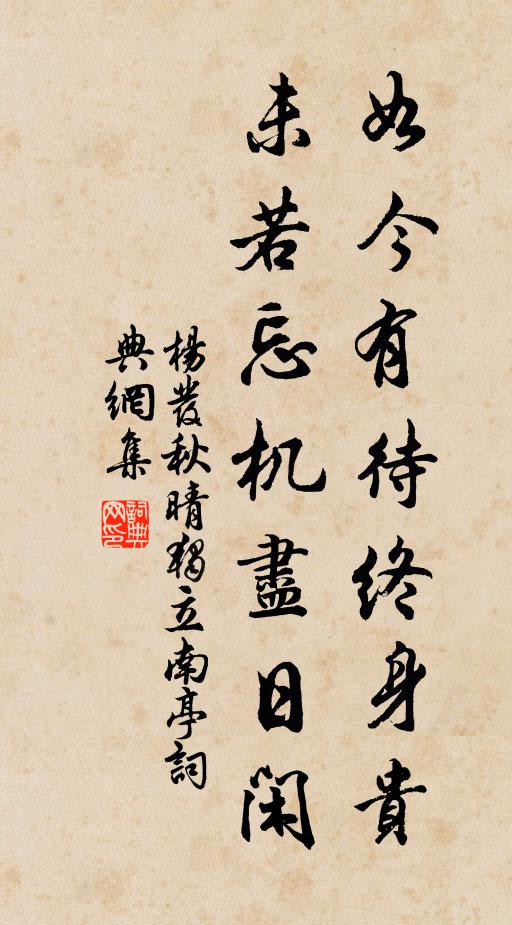 如今有待终身貴
未若忘机盡日闲
楊發秋晴獨立南亭詞
典網集
詞典网印